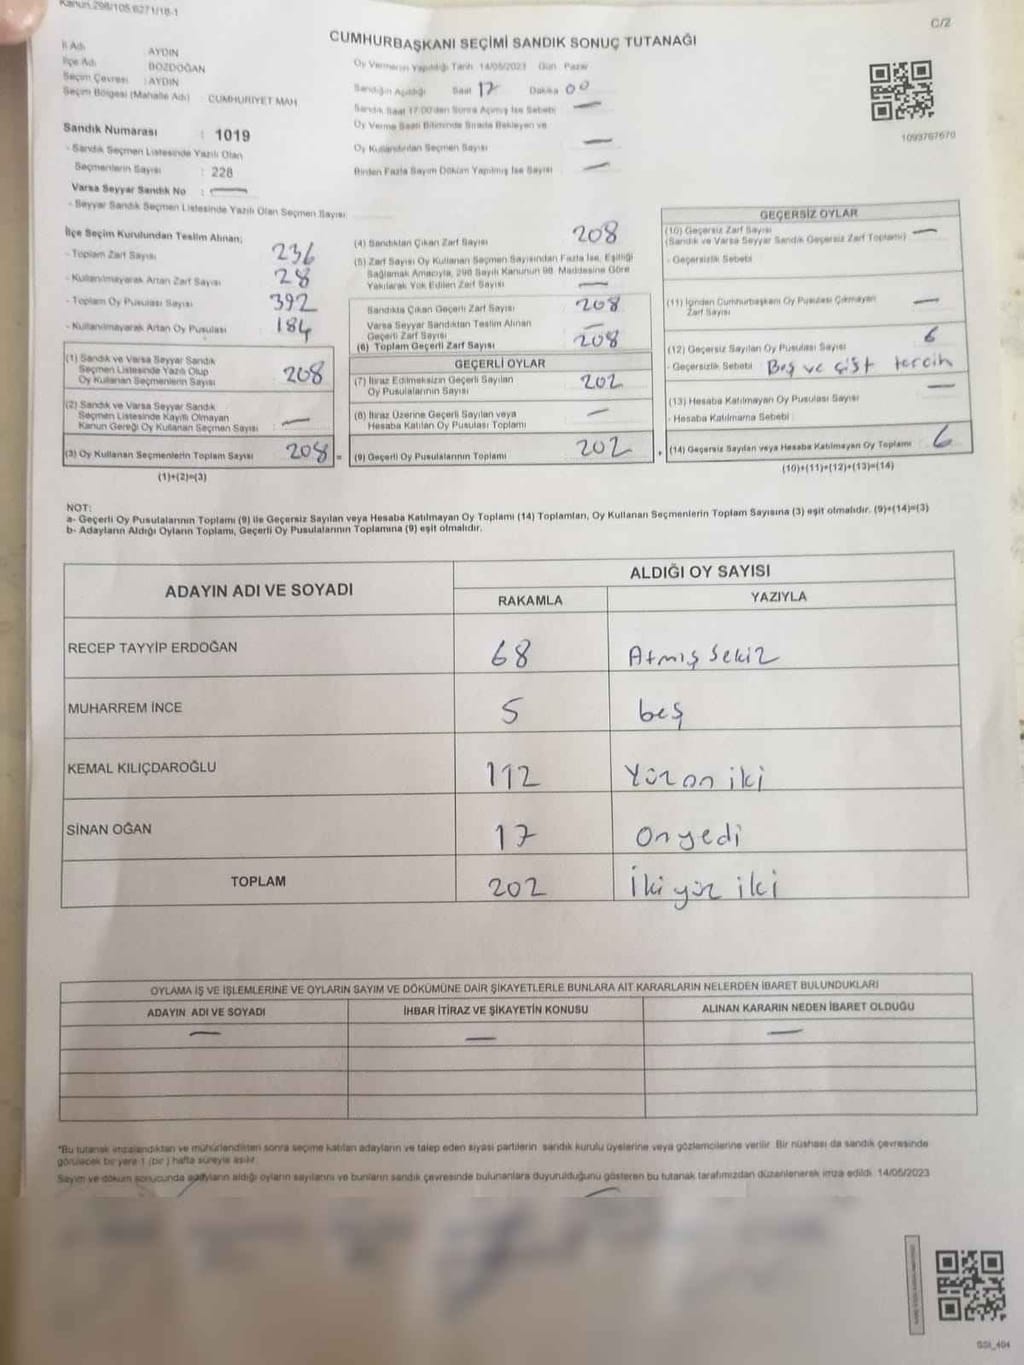 Kanun:298/105,6271/16-1
C/2
CUMHURBAŞKANI SEÇİMİ SANDIK SONUÇ TUTANAĞI
İl Adı AYDIN
İlçe Adı BOZDOĞAN
Seçim Çevresi : AYDIN
Seçim Bölgesi (Mahalle Adı) CUMHURİYET MAH
Sandık Numarası : 1019
- Sandık Seçmen Listesinde Yazılı Olan
Seçmenlerin Sayısı : 228
Varsa Seyyar Sandık No : —
- Seyyar Sandık Seçmen Listesinde Yazılı Olan Seçmen Sayısı
Oy Vermenin Yapıldığı Tarih 14/05/2023 Gün Pazar
Sandığın Açıldığı Saat 17 Dakika 00
Sandık Saat 17:00'den Sonra Açılmış İse Sebebi —
Oy Verme Saati Bitiminde Sırada Bekleyen ve
Oy Kullandırılan Seçmen Sayısı —
Birden Fazla Sayım Döküm Yapılmış İse Sayısı —
1093767670
İlçe Seçim Kurulundan Teslim Alınan;
- Toplam Zarf Sayısı 236
- Kullanılmayarak Artan Zarf Sayısı 28
- Toplam Oy Pusulası Sayısı 392
- Kullanılmayarak Artan Oy Pusulası 184
(1) Sandık ve Varsa Seyyar Sandık
Seçmen Listesinde Yazılı Olup
Oy Kullanan Seçmenlerin Sayısı 208
(2) Sandık ve Varsa Seyyar Sandık
Seçmen Listesinde Kayıtlı Olmayan
Kanun Gereği Oy Kullanan Seçmen Sayısı —
(3) Oy Kullanan Seçmenlerin Toplam Sayısı 208 =
(1)+(2)=(3)
(4) Sandıktan Çıkan Zarf Sayısı 208
(5) Zarf Sayısı Oy Kullanan Seçmen Sayısından Fazla İse, Eşitliği
Sağlamak Amacıyla, 298 Sayılı Kanunun 98. Maddesine Göre
Yakılarak Yok Edilen Zarf Sayısı —
Sandıkta Çıkan Geçerli Zarf Sayısı 208
Varsa Seyyar Sandıktan Teslim Alınan
Geçerli Zarf Sayısı —
(6) Toplam Geçerli Zarf Sayısı 208
GEÇERLİ OYLAR
(7) İtiraz Edilmeksizin Geçerli Sayılan
Oy Pusulalarının Sayısı 202
(8) İtiraz Üzerine Geçerli Sayılan veya
Hesaba Katılan Oy Pusulası Toplamı —
(9) Geçerli Oy Pusulalarının Toplamı 202 +
GEÇERSİZ OYLAR
(10) Geçersiz Zarf Sayısı —
(Sandık ve Varsa Seyyar Sandık Geçersiz Zarf Toplamı)
- Geçersizlik Sebebi
(11) İçinden Cumhurbaşkanı Oy Pusulası Çıkmayan
Zarf Sayısı —
(12) Geçersiz Sayılan Oy Pusulası Sayısı 6
- Geçersizlik Sebebi Boş ve çift tercih
(13) Hesaba Katılmayan Oy Pusulası Sayısı —
- Hesaba Katılmama Sebebi
(14) Geçersiz Sayılan veya Hesaba Katılmayan Oy Toplamı 6
(10)+(11)+(12)+(13)=(14)
NOT:
a- Geçerli Oy Pusulalarının Toplamı (9) ile Geçersiz Sayılan veya Hesaba Katılmayan Oy Toplamı (14) Toplamları, Oy Kullanan Seçmenlerin Toplam Sayısına (3) eşit olmalıdır. (9)+(14)=(3)
b- Adayların Aldığı Oyların Toplamı, Geçerli Oy Pusulalarının Toplamına (9) eşit olmalıdır.
ADAYIN ADI VE SOYADI
ALDIĞI OY SAYISI
RAKAMLA YAZIYLA
RECEP TAYYİP ERDOĞAN 68 Atmış sekiz
MUHARREM İNCE 5 beş
KEMAL KILIÇDAROĞLU 112 Yüz on iki
SİNAN OĞAN 17 Onyedi
TOPLAM 202 İki yüz iki
OYLAMA İŞ VE İŞLEMLERİNE VE OYLARIN SAYIM VE DÖKÜMÜNE DAİR ŞİKAYETLERLE BUNLARA AİT KARARLARIN NELERDEN İBARET BULUNDUKLARI
ADAYIN ADI VE SOYADI İHBAR İTİRAZ VE ŞİKAYETİN KONUSU ALINAN KARARIN NEDEN İBARET OLDUĞU
— — —
*Bu tutanak imzalandıktan ve mühürlendikten sonra seçime katılan adayların ve talep eden siyasi partilerin sandık kurulu üyelerine veya gözlemcilerine verilir. Bir nüshası da sandık çevresinde
görülecek bir yere 1 (bir) hafta süreyle asılır.
Sayım ve döküm sonucunda adayların aldığı oyların sayılarını ve bunların sandık çevresinde bulunanlara duyurulduğunu gösteren bu tutanak tarafımızdan düzenlenerek imza edildi. 14/05/2023
SSI_404